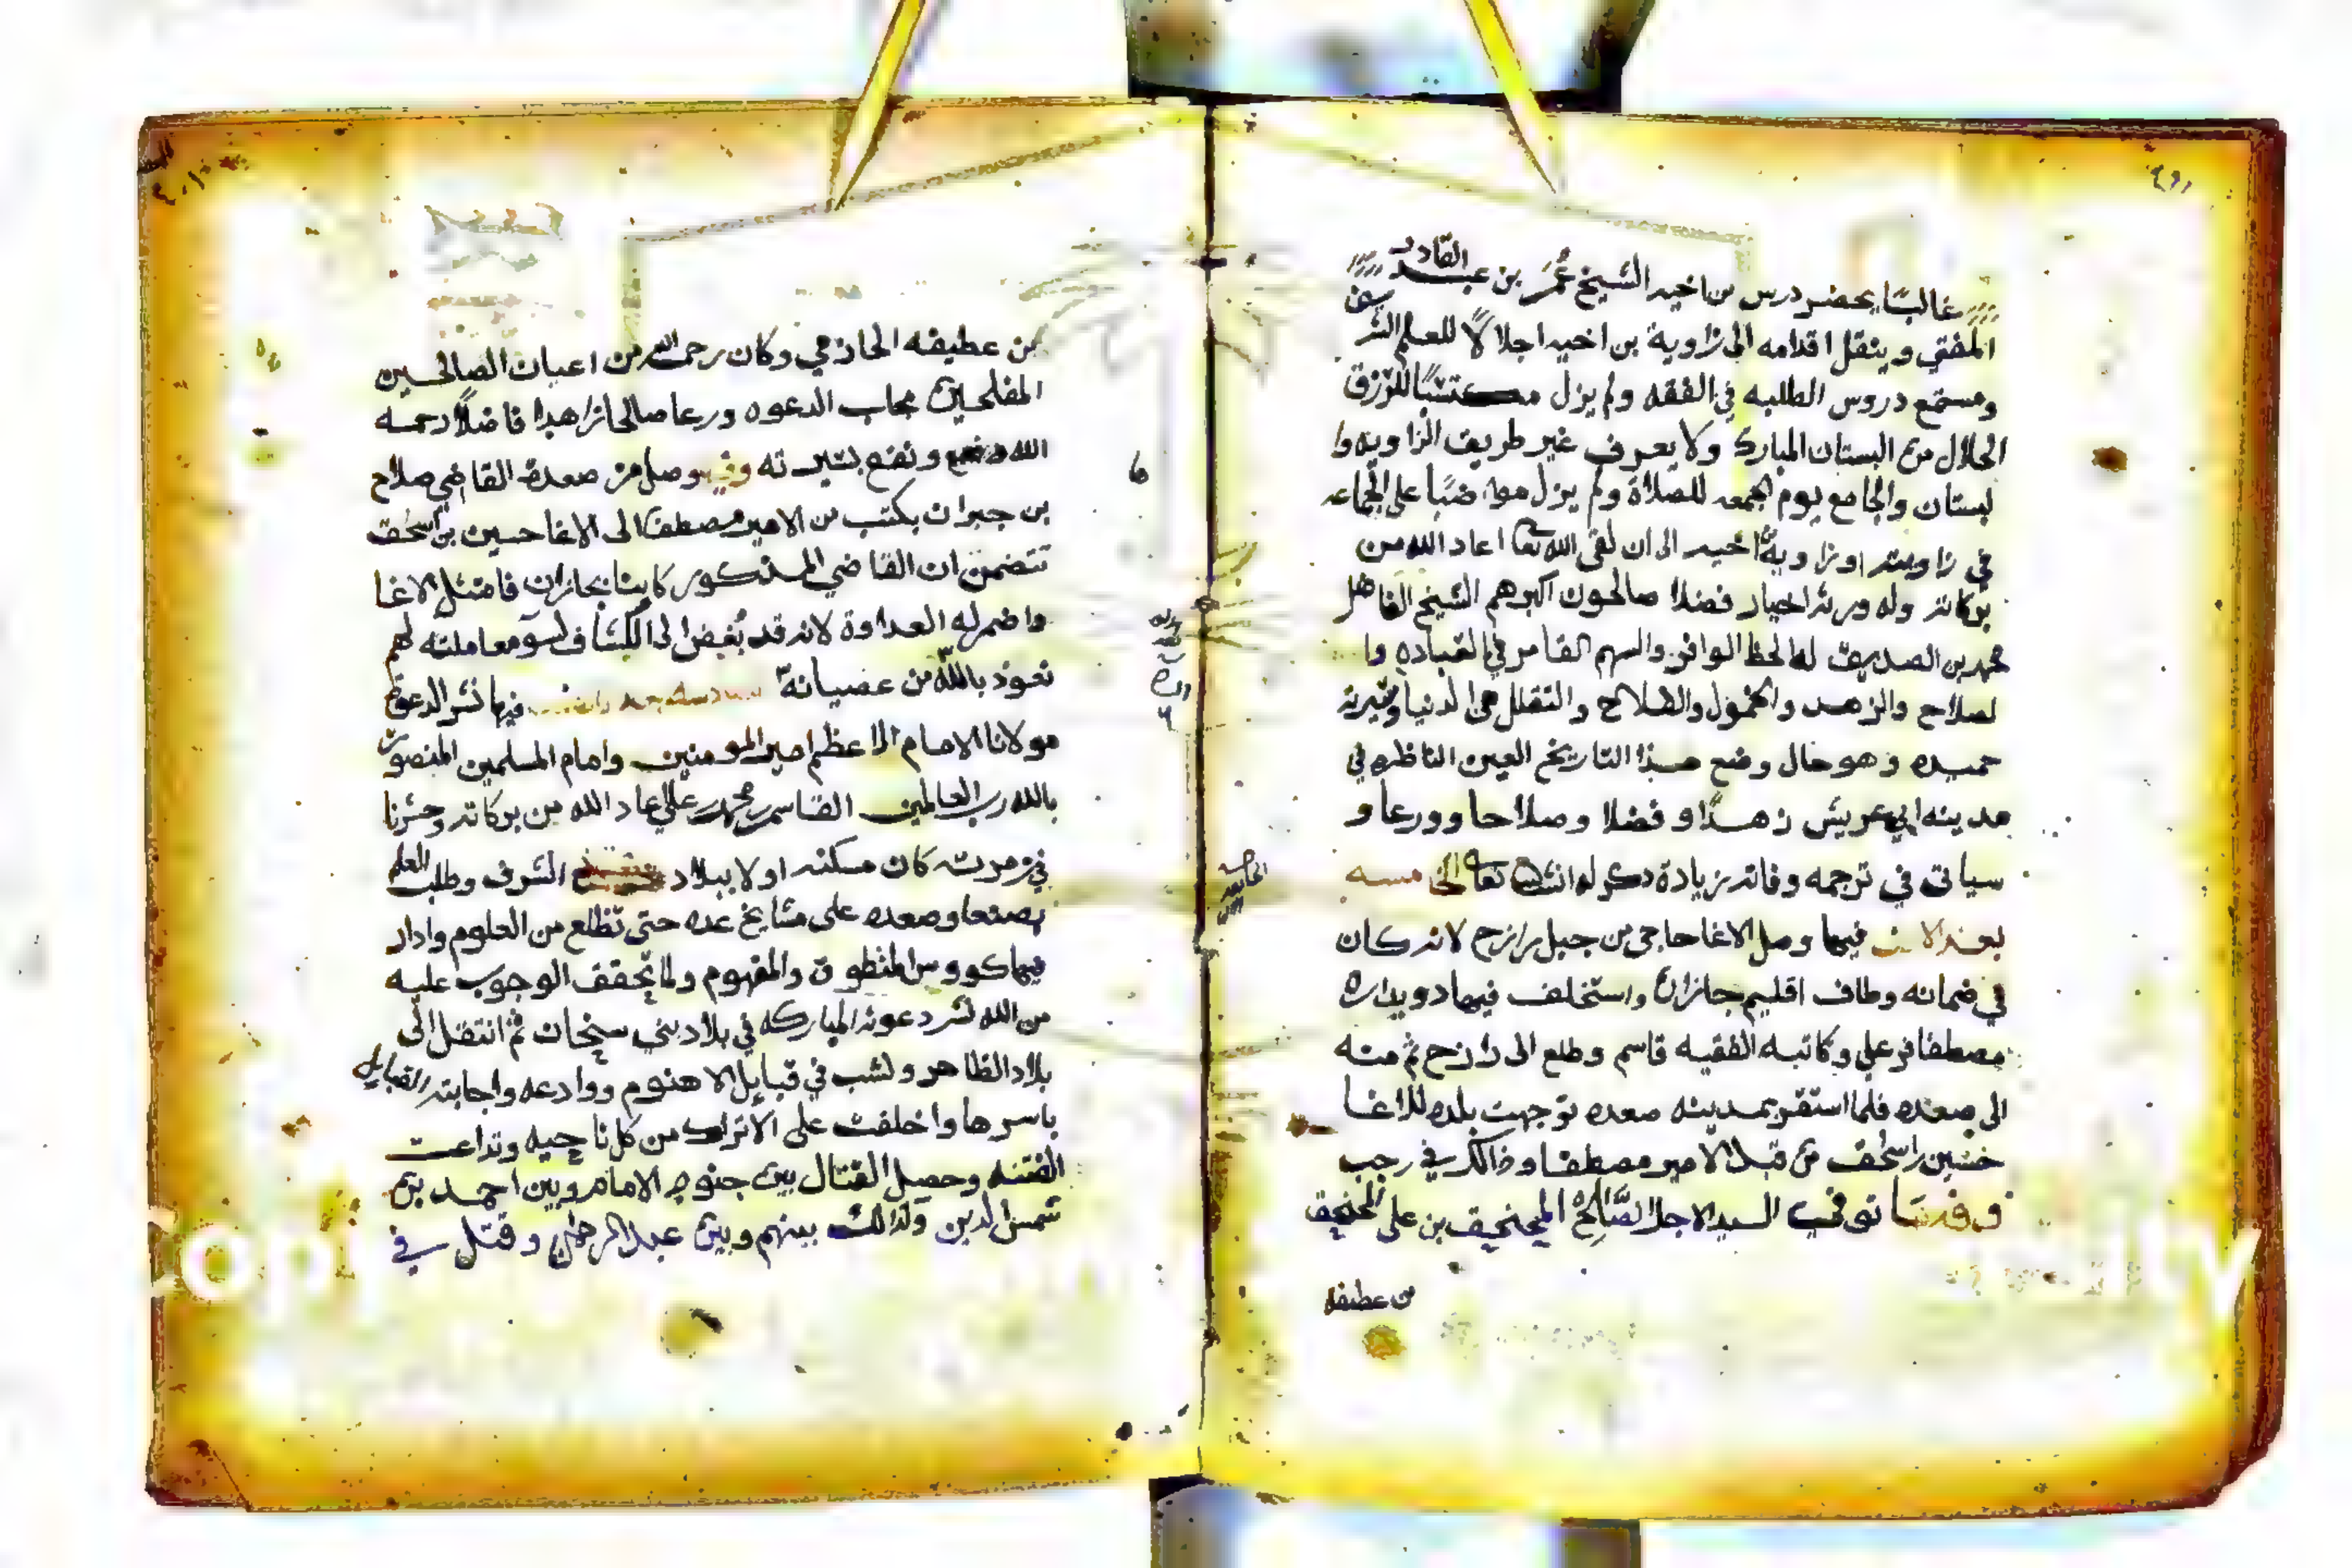 غالبًا يحضر درس بن اخيه الشيخ عُمَر بن عبد القادر
المفتي وينقل اقدامه الى زاوية بن اخيه اجلالًا للعلم الشريف
ومستمع دروس الطلبه في الفقه ولم يزل مكتسبًا للرزق
الحلال من البستان المبارك ولا يعرف غير طريق الزاويه وا
لبستان والجامع يوم الجمعه للصلاة ولم يزل مواضبًا على الجماعه
في زاويته او زاوية اخيه الى ان لقى الله تعا اعاد الله من
بركاته وله ورثه اخيار فضلا صالحون اكبرهم الشيخ الفاضل
محمد بن الصديق له الحظ الوافر والسهم القامر في العباده وا
لصلاح والزهد والخمول والفلاح والتقلل من الدنيا وسيرته
حميده وهو حال وضع هذا التاريخ العين الناظره في
مدينه ابي عريش زهدًا و فضلا وصلاحا وورعا و
سياتي في ترجمه وفاته زيادة ذكر له انشا الله تعا الخامسه
بعد الالف فيها وصل الاغا حاجي من جبل رازح لانه كان
في ضمانه وطاف اقليم جازان واستخلف فيها دويداره
مصطفا بن علي وكاتبه الفقيه قاسم وطلع الى رازح ثم منه
الى صعده فلما استقر بمدينه صعده توجهت بلده للاغا
حسين بن اسحق من قبل الامير مصطفا وذالك في رجب
وفيها توفي السيد الاجل الصَّالِحْ المنجنيق بن علي المنجنيق
بن عطيفه
بن عطيفه الحازمي وكان رحمه الله من اعيان الصالحين
المفلحين مجاب الدعوه ورعا صالحا زاهدا فاضلًا رحمه
الله ونفع وصل من صعدة القاضي صلاح
بن جبران بكتب من الامير مصطفا الى الاغا حسين بن اسحق
تتضمن ان القاضي المذكور كاتبا بجازان فامتثل الاغا
واضمر له العداوة لانه قد بُغض الى الكشاف لسو معاملته لهم
نعوذ بالله من عصيانه فيها نشر الدعوة
مولانا الامام الاعظم امير المومنين وامام المسلمين المنصور
بالله رب العالمين القاسم بن محمد بن علي اعاد الله من بركاته وحشرنا
في زمرته كان مسكنه اولا ببلاد الشرف وطلب العلم
بصنعا وصعده على مشايخ عده حتى تظلع من العلوم وادار
فيها كووس المنطوق والمفهوم ولما تحقق الوجوب عليه
من الله نشر دعوته المباركه في بلاد بني سنحان ثم انتقل الى
بلاد الظاهر ونشب في قبايل الاهنوم ووادعه واجابته القبايل
باسرها واخلفت على الاتراك من كل ناحيه وتداعت
الفتنه وحصل القتال بين جنود الامام وبين احمد بن
شمس الدين وكذالك بينهم وبين عبد الرحمن وقتل في